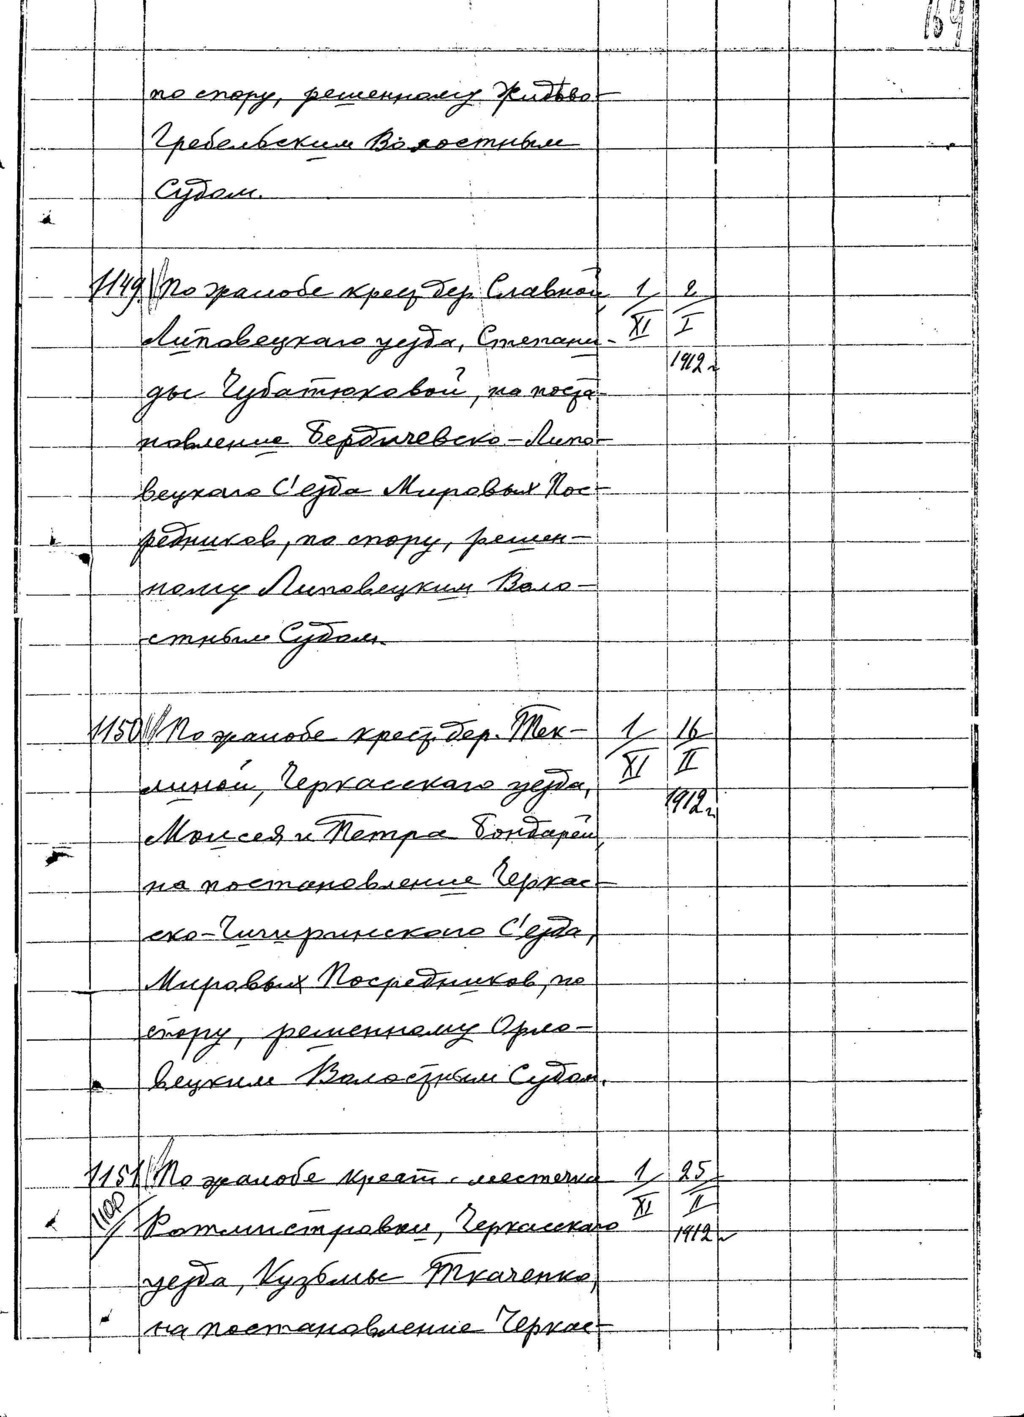 164
по спору, решенному Жидово-
Гребельским Волостным
Судом.
1149 По жалобе крест. дер. Славной 1/XI 2/I
Липовецкаго уезда, Степани-
1912 г.
ды Чубатюковой, на поста-
новление Бердичевско-Липо-
вецкаго С'езда Мировых Пос-
редников, по спору, решен-
ному Липовецким Воло-
стным Судом.
1150 По жалобе крест. дер. Тек- 1/XI 16/II
линой, Черкасскаго уезда,
1912 г.
Моисея и Петра Бондарей,
на постановление Черкас-
ско-Чигиринскаго С'езда,
Мировых Посредников, по
спору, решенному Орло-
вецким Волостным Судом.
1151 По жалобе крест. местечка 1/XI 25/II
Ротмистровки, Черкасскаго
1912 г.
уезда, Кузьмы Ткаченко,
на постановление Черкас-